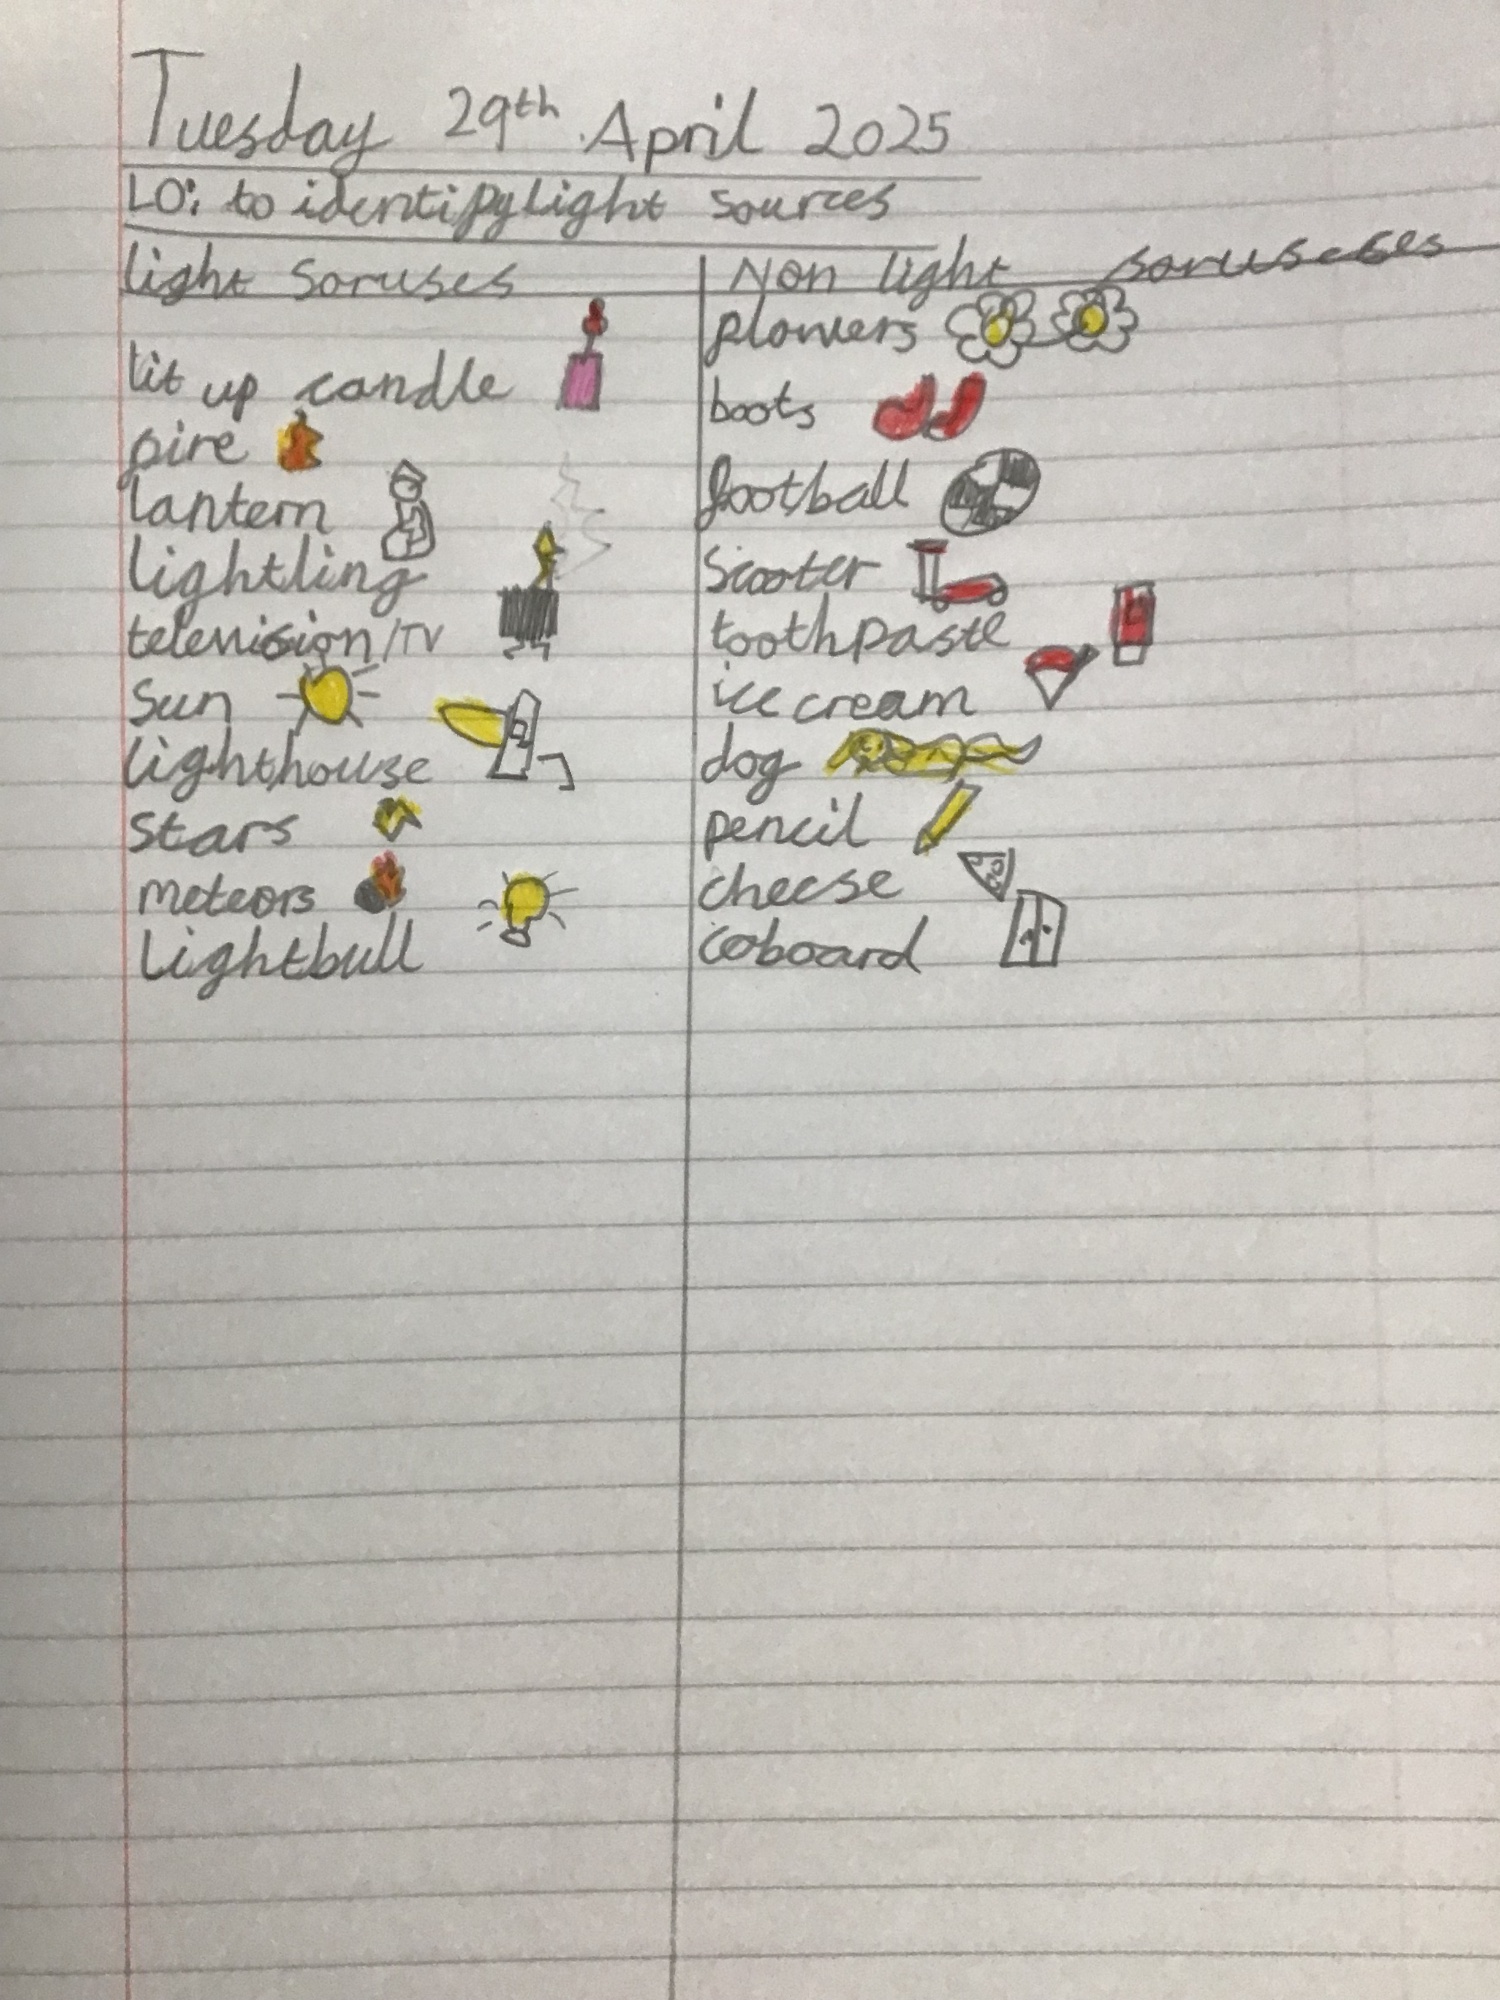 Tuesday 29th April 2025
LO: to identify light sources
light soruses
lit up candle
fire
lantern
lightling
television/TV
Sun
lighthouse
stars
meteors
Lightbull
Non light soruseses
flowers
boots
football
Scooter
toothpaste
ice cream
dog
pencil
cheese
coboard